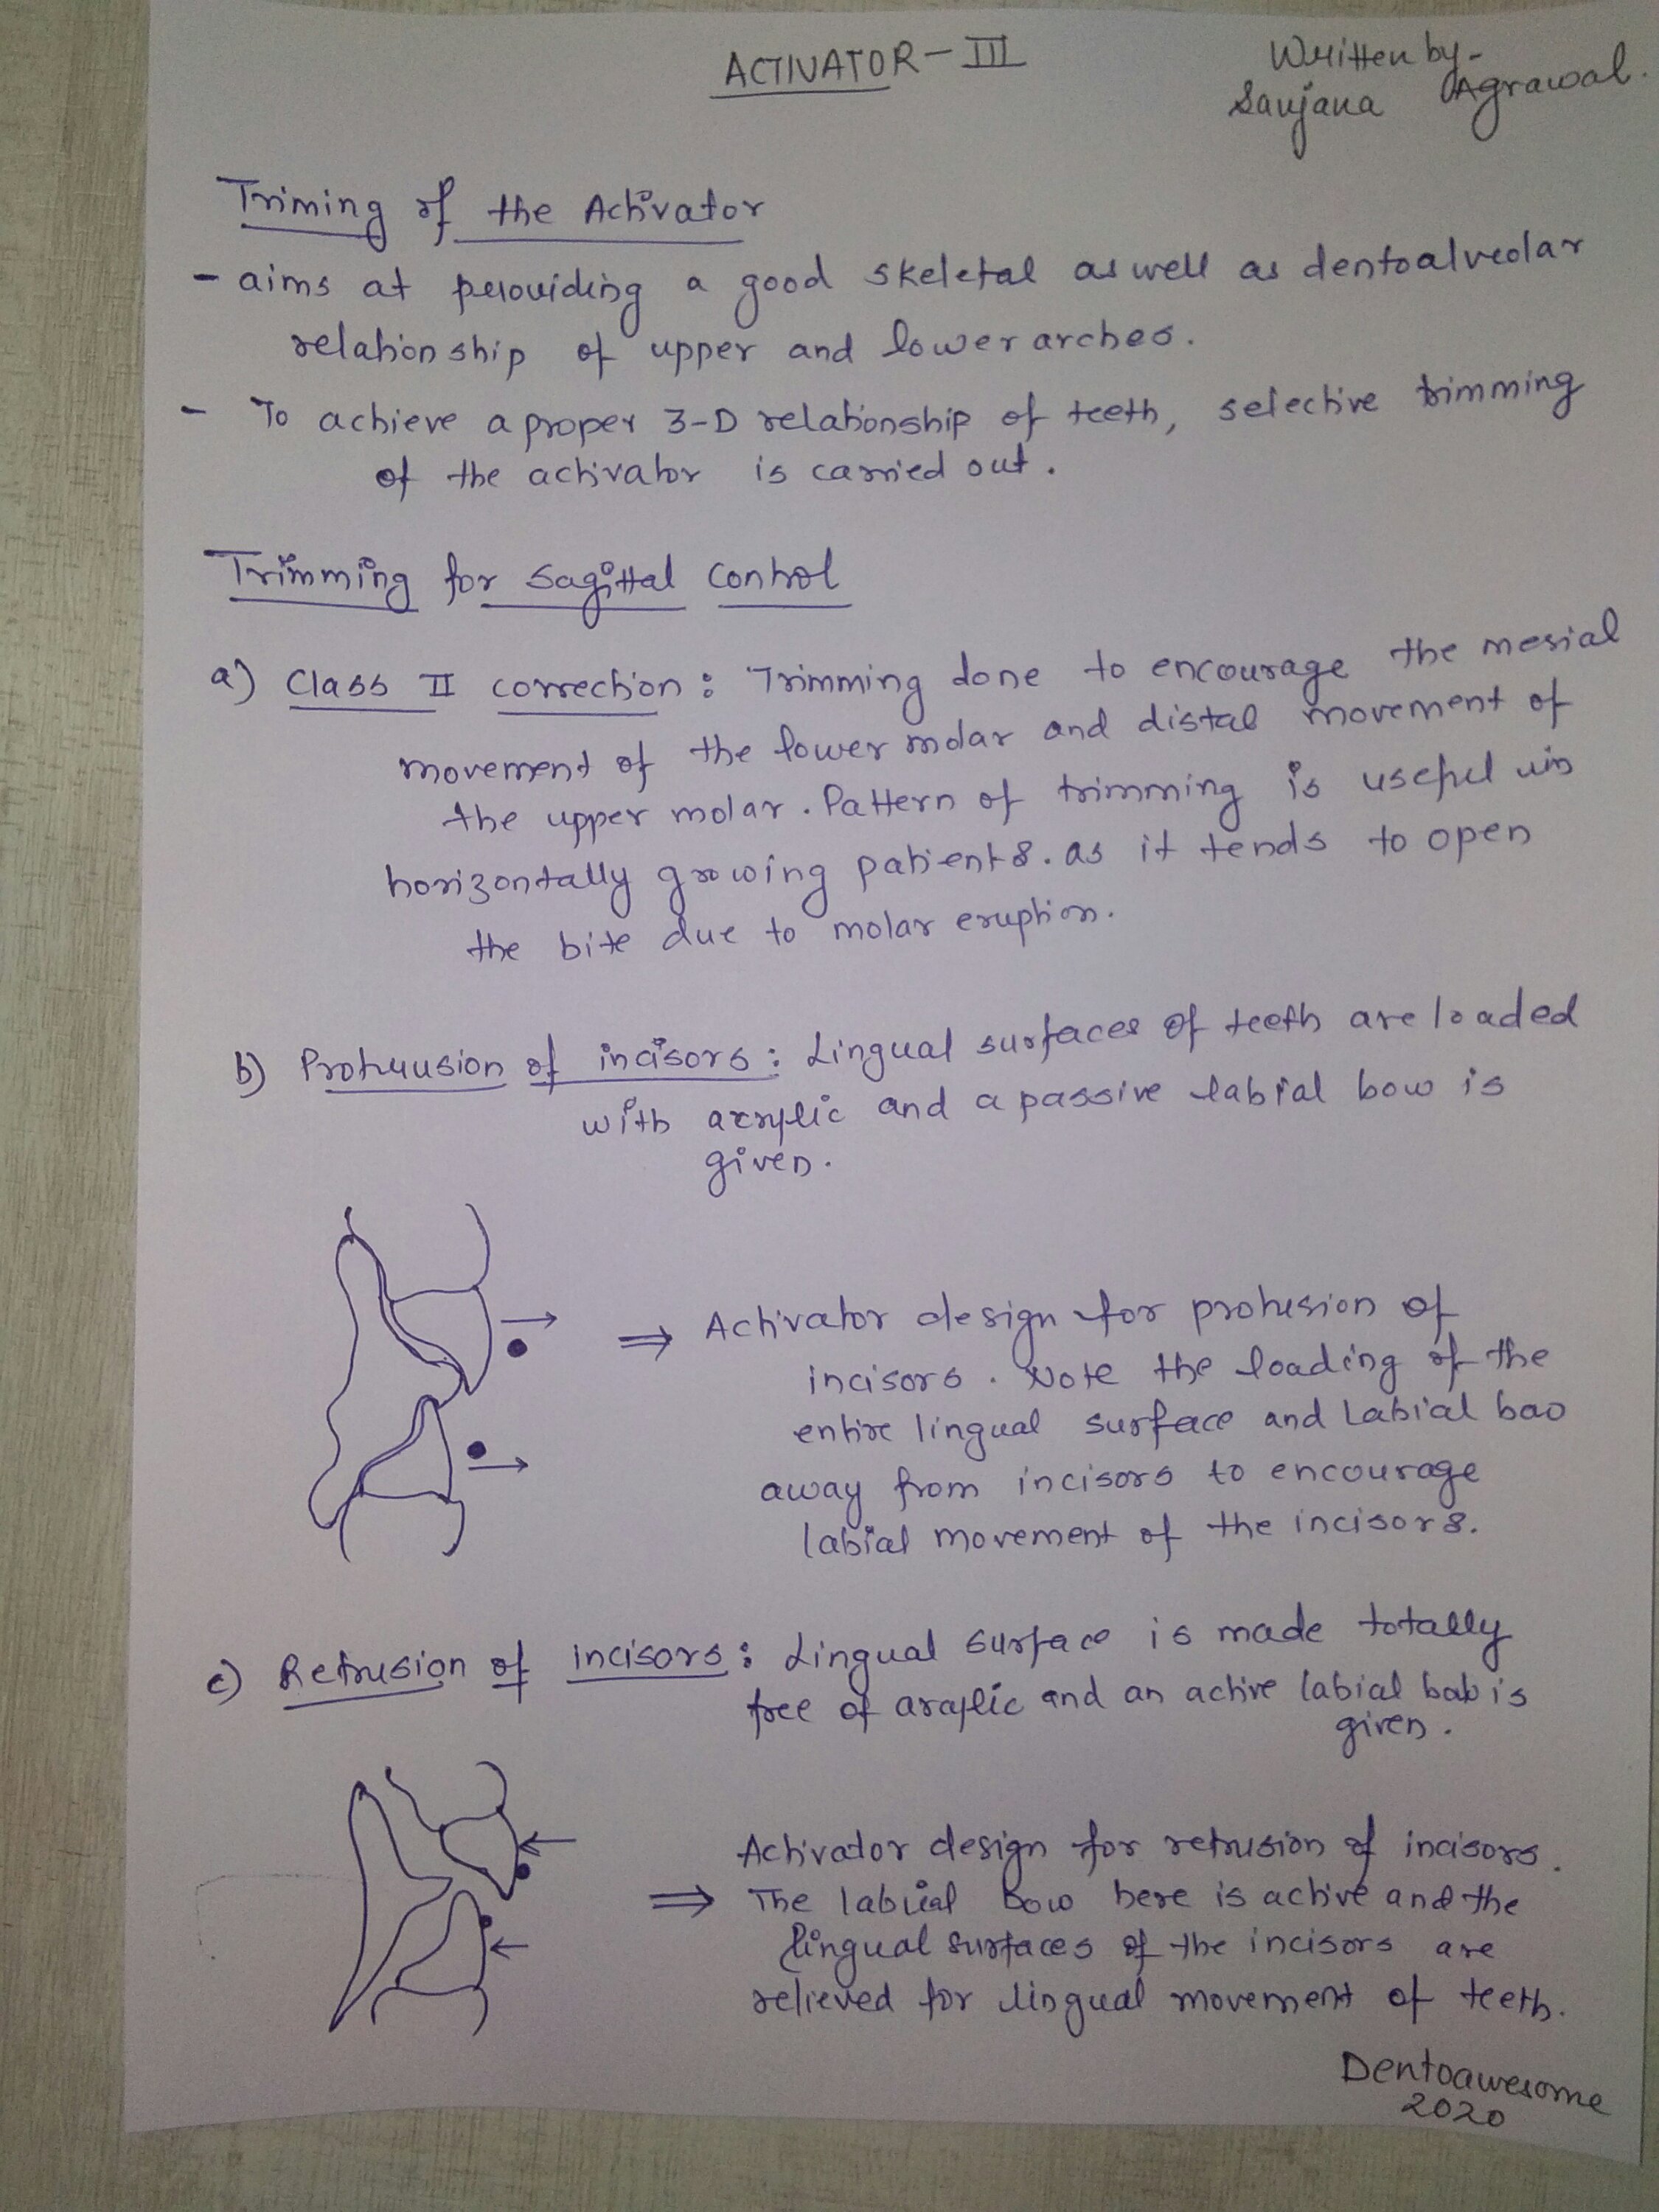 ACTIVATOR-III
Written by-
Sanjana Agrawal.
Triming of the Activator
- aims at providing a good skeletal as well as dentoalveolar
relationship of upper and lower arches.
- To achieve a proper 3-D relationship of teeth, selective trimming
of the activator is carried out.
Trimming for Sagittal Control
a) Class II correction: Trimming done to encourage the mesial
movement of the lower molar and distal movement of
the upper molar. Pattern of trimming is useful in
horizontally growing patients. as it tends to open
the bite due to molar eruption.
b) Protrusion of incisors: Lingual surfaces of teeth are loaded
with acrylic and a passive labial bow is
given.
⇒ Activator design for protusion of
incisors. Note the loading of the
entire lingual surface and Labial bao
away from incisors to encourage
labial movement of the incisors.
c) Retrusion of incisors: Lingual surface is made totally
free of acrylic and an active labial bab is
given.
Activator design for retrusion of incisors.
⇒ The labial bow here is active and the
lingual surfaces of the incisors are
relieved for lingual movement of teeth.
Dentoawesome
2020